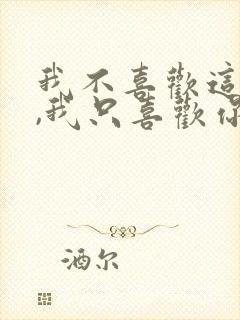 我不喜歡這
,我只喜歡你
酒尔